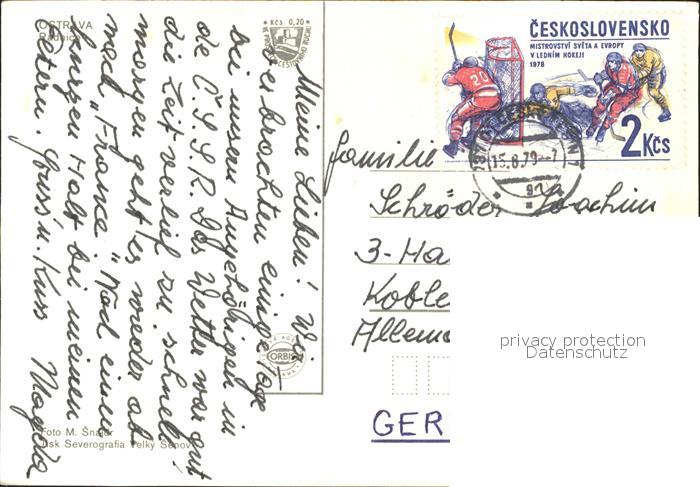 OSTRAVA
Radnice
Kčs 0,20
ČESKOSLOVENSKO
MISTROVSTVÍ SVĚTA A EVROPY
V LEDNÍM HOKEJI
1978
20
2 Kčs
15.8.79
Meine Lieben! Wir
verbrachten einige Tage
bei unsern Angehörigen in
die Č.S.S.R. Das Wetter war gut
die Zeit verlief zu schnell,
morgen geht es wieder ab
nach "France". Nach einem
kurzen Halt bei meinen
Vetern. Gruss u. Kuss Magda
Familie
Schröder Joachim
3-Ha
Koble
Allema
GER
ORBIS
privacy protection
Datenschutz
Foto M. Šnajdr
Tisk Severografia Velký Šenov